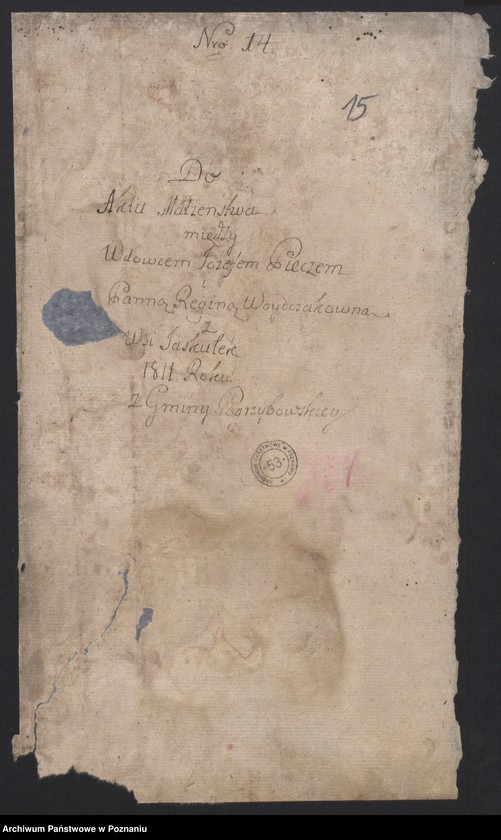 Nro 14.
15
Do
Aktu Małżeństwa
między
Wdowcem Jozefem Pieczem
i
Panną Regina Woydczakowna
z
Wsi Jaskulek
1811 Roku
z Gminy Pogrzybowskiey
53
Archiwum Państwowe w Poznaniu